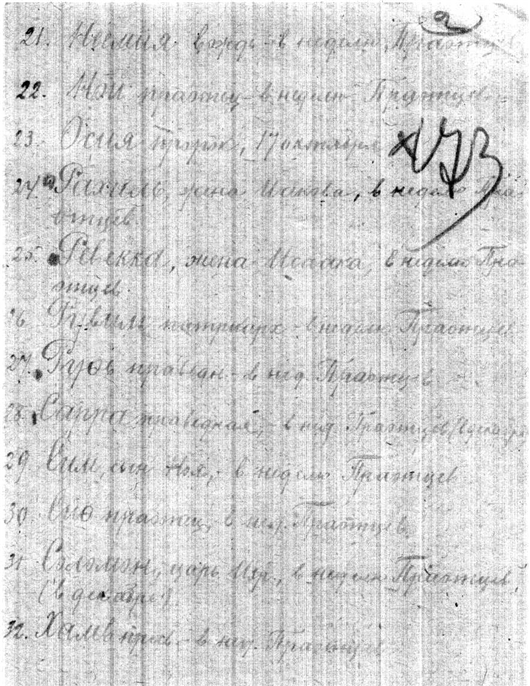 21. Неемия вождь - в неделю Праотцев
22. Ной праотец - в неделю Праотцев
23. Осия пророк, 17 октября
24. Рахиль, жена Иакова, в неделю Пра-
отцев
25. Ревекка, жена Исаака, в неделю Пра-
отцев
26. Рувим патриарх - в неделю Праотцев
27. Руфь праведн. - в нед. Праотцев
28. Сарра праведная, - в нед. Праотцев
29. Сим, сын Ноя, - в неделю Праотцев
30. праотец, в нед. Праотцев
31 Соломон, царь Изр., в неделю Праотцев,
(в декабре)
32. Халев - в нед. Праотцев